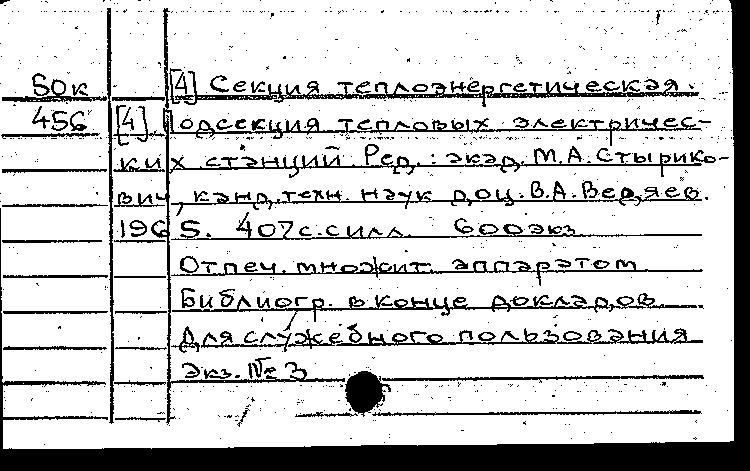 50к [4] Секция теплоэнергетическая.
456 [4] Подсекция тепловых электричес-
ких станций. Ред.: акад. М.А. Стырико-
вич, канд. техн. наук доц. В.А. Ведяев.
1965. 407с. с илл. 600экз
Отпеч. множит. аппаратом
Библиогр. в конце докладов
Для служебного пользования
Экз. № 3